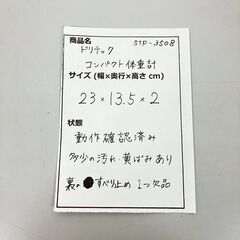 商品名 S1P-3508
ドリテック
コンパクト体重計
サイズ(幅×奥行×高さ cm)
23×13.5×2
状態
動作確認済み
多少の汚れ 黄ばみあり
裏の●すべり止め 1つ欠品